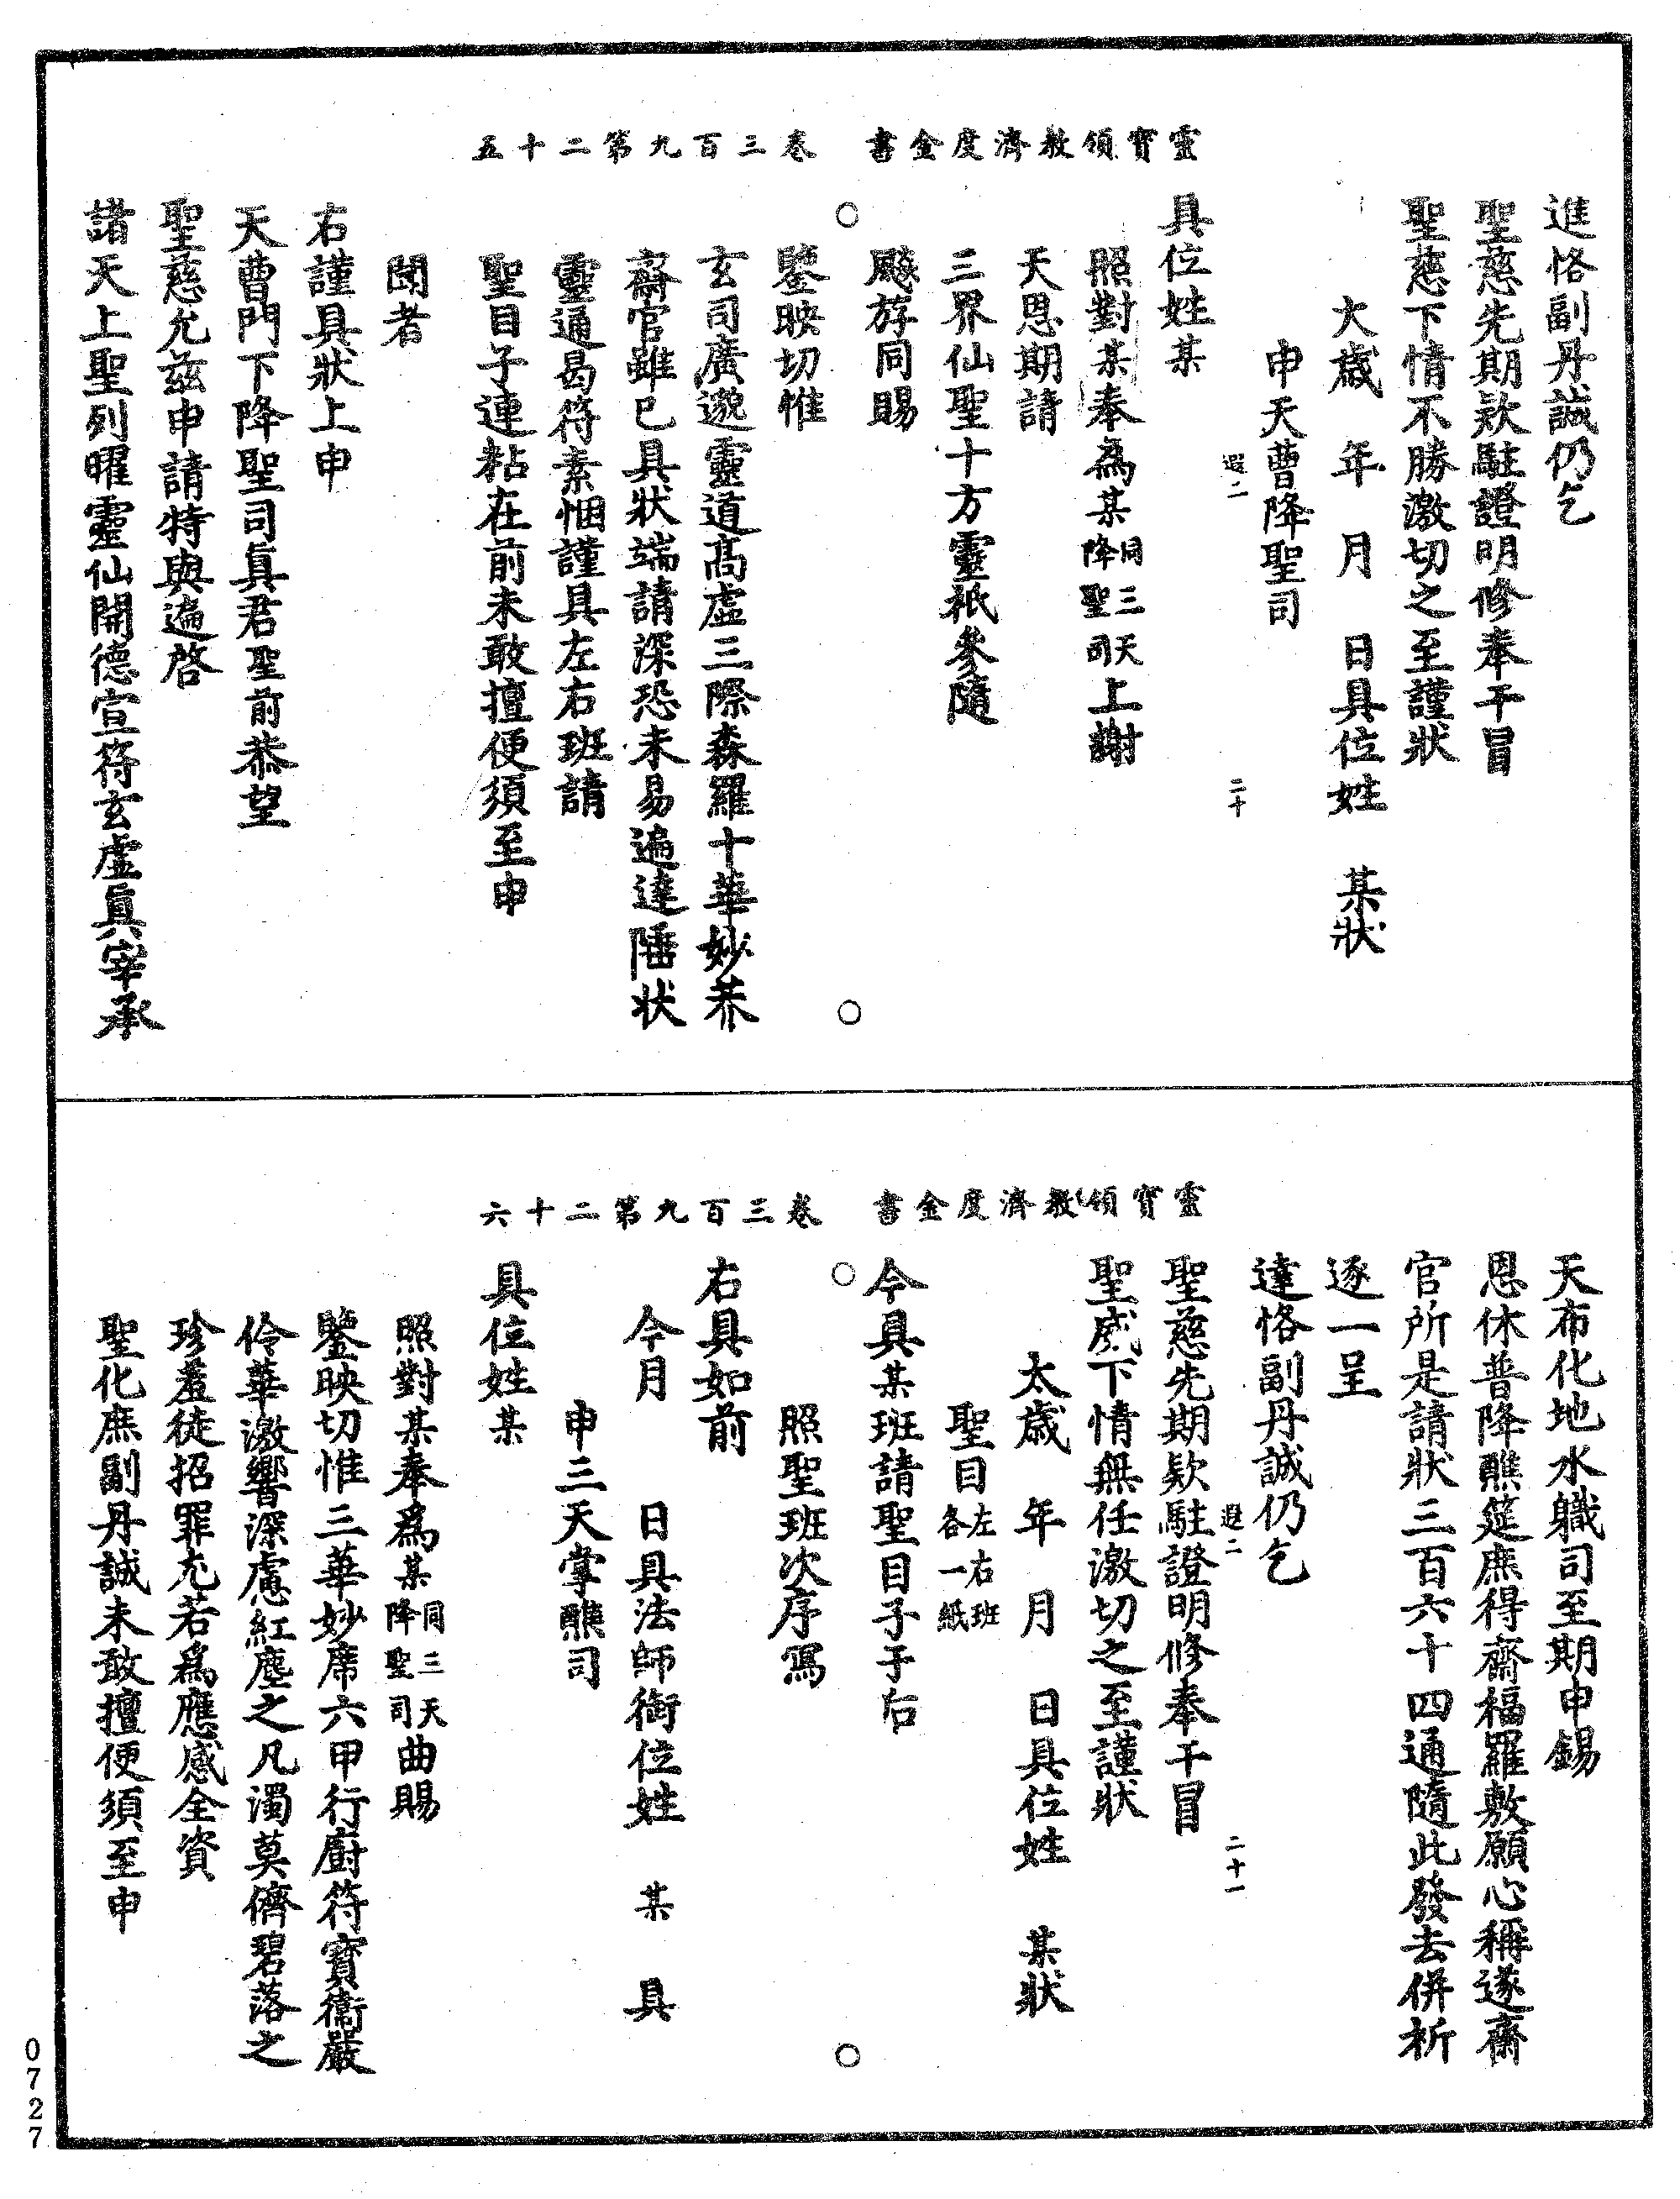 靈寶領教濟度金書　卷三百九第二十五
進恪副丹誠仍乞
聖慈先期欵駐證明修奉干冒
聖慈下情不勝激切之至謹狀
大歲　年　月　日具位姓　某狀
申天曹降聖司
遐二　二十
具位姓某
照對某奉爲某同三天降聖司上謝
天恩期請
三界仙聖十方靈祇參隨
飈斿同賜
鑒映切惟
玄司廣邈靈道高虛三際森羅十華妙莽
齋官雖已具狀端請深恐未易遍達陲狀
靈通曷符素悃謹具左右班請
聖目子連粘在前未敢擅便須至申
聞者
右謹具狀上申
天曹門下降聖司眞君聖前恭望
聖慈允兹申請特與遍啓
諸天上聖列曜靈仙開德宣符玄虛眞宰承
靈寶領教濟度金書　卷三百九第二十六
天布化地水職司至期申錫
恩休普降醮筵庶得齋福羅敷願心稱遂齋
官所是請狀三百六十四通隨此發去併祈
逐一呈
達恪副丹誠仍乞
遐二　二十一
聖慈先期欵駐證明修奉干冒
聖威下情無任激切之至謹狀
太歲　年　月　日具位姓　某狀
聖目左右班各一紙
今具某班請聖目子于后
照聖班次序寫
右具如前
今月　日具法師銜位姓　某　具
申三天掌醮司
具位姓某
照對某奉爲某同三天降聖司曲賜
鑒映切惟三華妙席六甲行廚符寶衞嚴
伶華激響深慮紅塵之凡濁莫儕碧落之
珍羞徒招罪尢若爲應感全資
聖化庶副丹誠未敢擅便須至申
0727